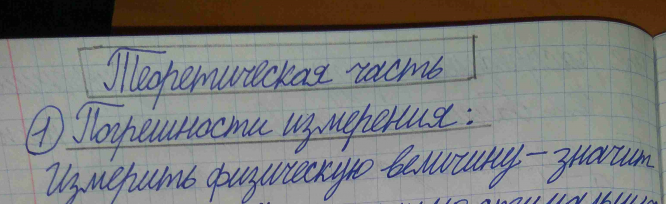 Теоретическая часть
1 Погрешности измерения:
Измерить физическую величину - значит